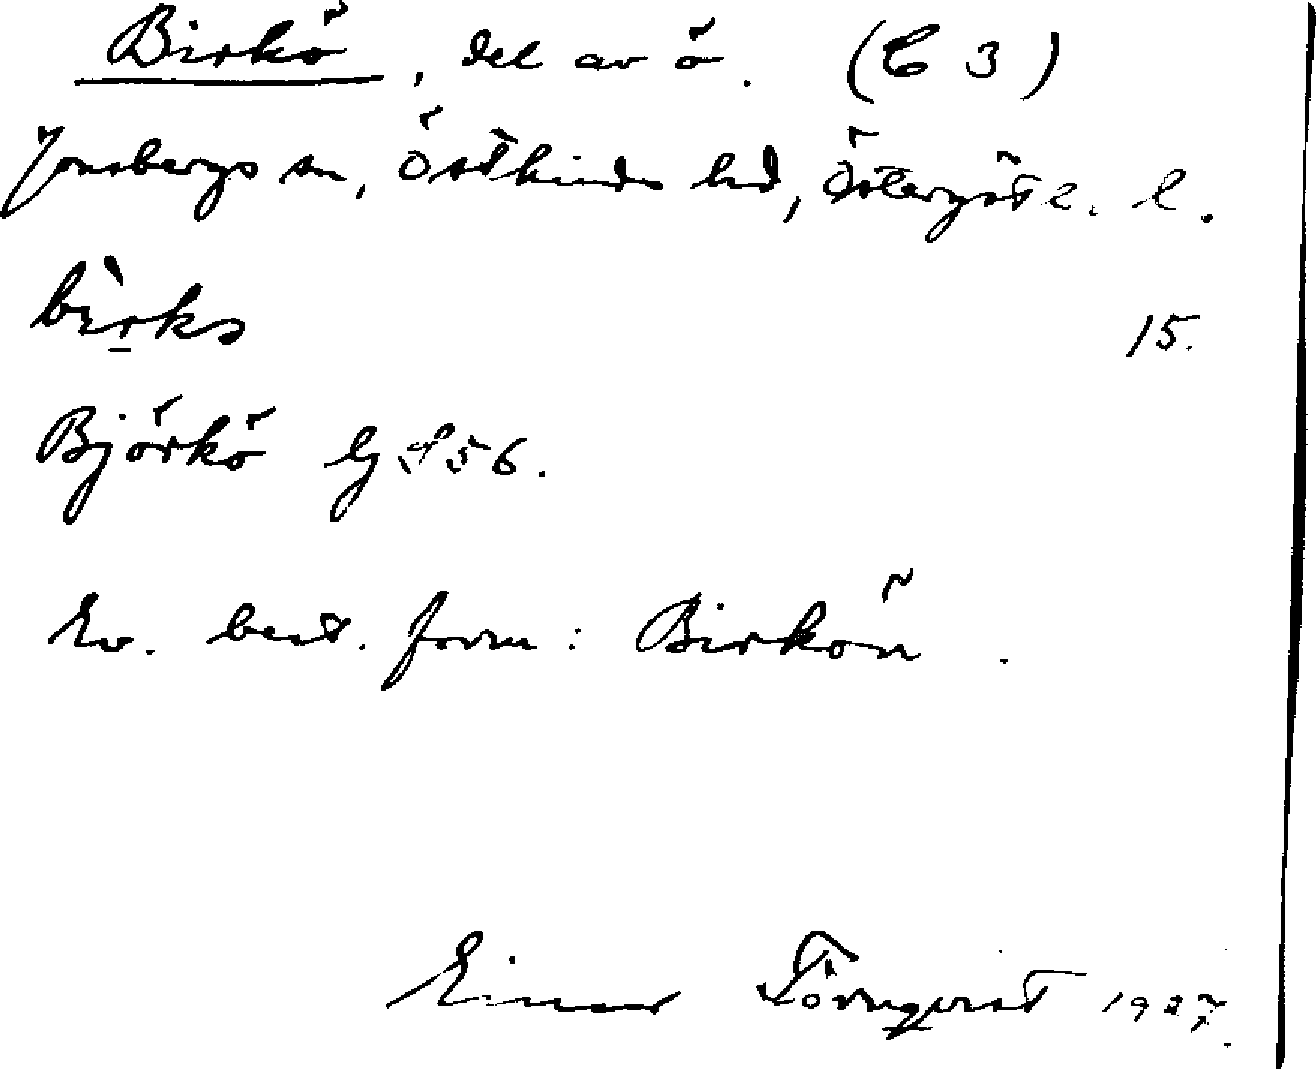 Birkö, del av ö. (C 3)
Jonsbergs sn, Östkinds hd, Östergötl. l.
bìrkö 15.
Björkö GS 56.
Ev. best. form: Birkön.
Einar Törnqvist 1927.